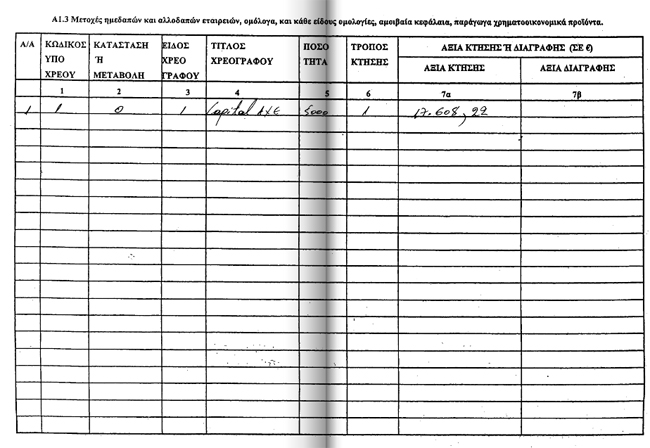 Α1.3 Μετοχές ημεδαπών και αλλοδαπών εταιρειών, ομόλογα, και κάθε είδους ομολογίες, αμοιβαία κεφάλαια, παράγωγα χρηματοοικονομικά προϊόντα.
Α/Α ΚΩΔΙΚΟΣ ΥΠΟ ΧΡΕΟΥ ΚΑΤΑΣΤΑΣΗ Ή ΜΕΤΑΒΟΛΗ ΕΙΔΟΣ ΧΡΕΟ ΓΡΑΦΟΥ ΤΙΤΛΟΣ ΧΡΕΟΓΡΑΦΟΥ ΠΟΣΟ ΤΗΤΑ ΤΡΟΠΟΣ ΚΤΗΣΗΣ ΑΞΙΑ ΚΤΗΣΗΣ Ή ΔΙΑΓΡΑΦΗΣ (ΣΕ €)
ΑΞΙΑ ΚΤΗΣΗΣ ΑΞΙΑ ΔΙΑΓΡΑΦΗΣ
1 2 3 4 5 6 7α 7β
1 1 0 1 Capital ΑΧΕ 5000 1 17.608,22